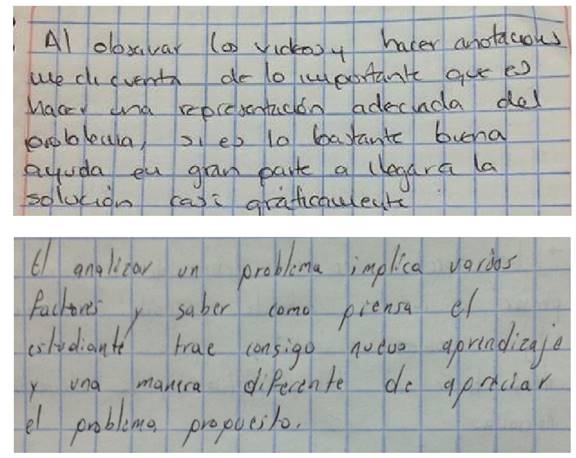 Al observar los videos y hacer anotaciones
me di cuenta de lo importante que es
hacer una representación adecuada del
problema, si es lo bastante buena
ayuda en gran parte a llegar a la
solución casi gráficamente
El analizar un problema implica varios
factores y saber como piensa el
estudiante trae consigo nuevo aprendizaje
y una manera diferente de apreciar
el problema propuesto.